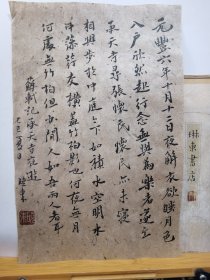 元豐六年十月十二日夜解衣欲睡月色
入戶欣然起行念無與為樂者遂至
承天寺尋張懷民懷民亦未寢
相與步於中庭々下如積水空明水
中藻荇交橫蓋竹柏影也何夜無月
何處無竹柏但少閒人如吾兩人者耳
蘇軾記承天寺夜遊
書店